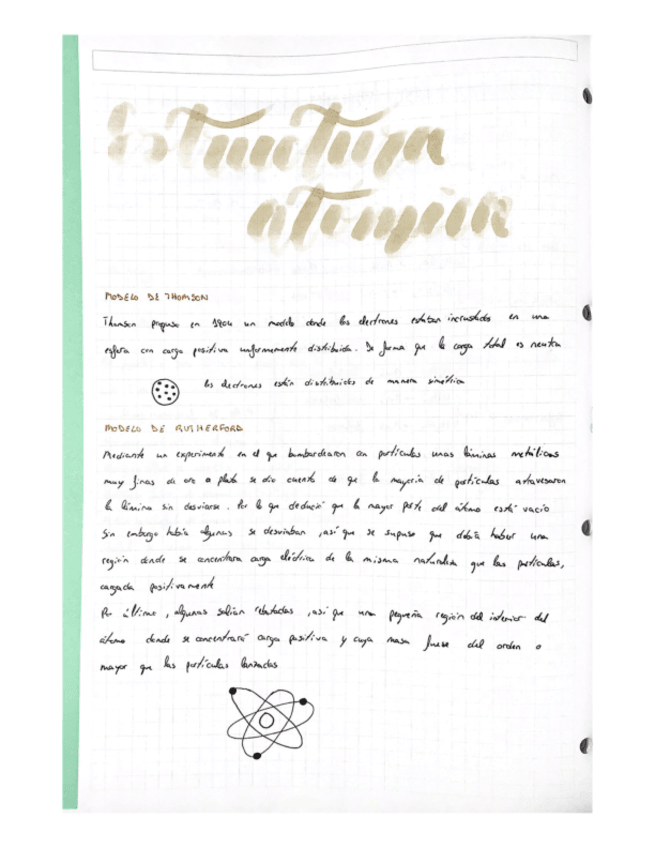 Estructura
atómica
MODELO DE THOMSON
Thomson propuso en 1904 un modelo donde los electrones estaban incrustados en una
esfera con carga positiva uniformemente distribuida. De forma que la carga total es neutra
los electrones están distribuidos de manera simétrica
MODELO DE RUTHERFORD
Mediante un experimento en el que bombardearon con partículas unas láminas metálicas
muy finas de oro o plata se dio cuenta de que la mayoría de partículas atravesaron
la lámina sin desviarse. Por lo que dedució que la mayor parte del átomo está vacío
Sin embargo había algunas se desviaban, así que se supuso que debía haber una
región donde se concentrara carga eléctrica de la misma naturaleza que las partículas,
cargada positivamente
Por último, algunas salían rebotadas, así que una pequeña región del interior del
átomo donde se concentrará carga positiva y cuya masa fuese del orden o
mayor que las partículas lanzadas